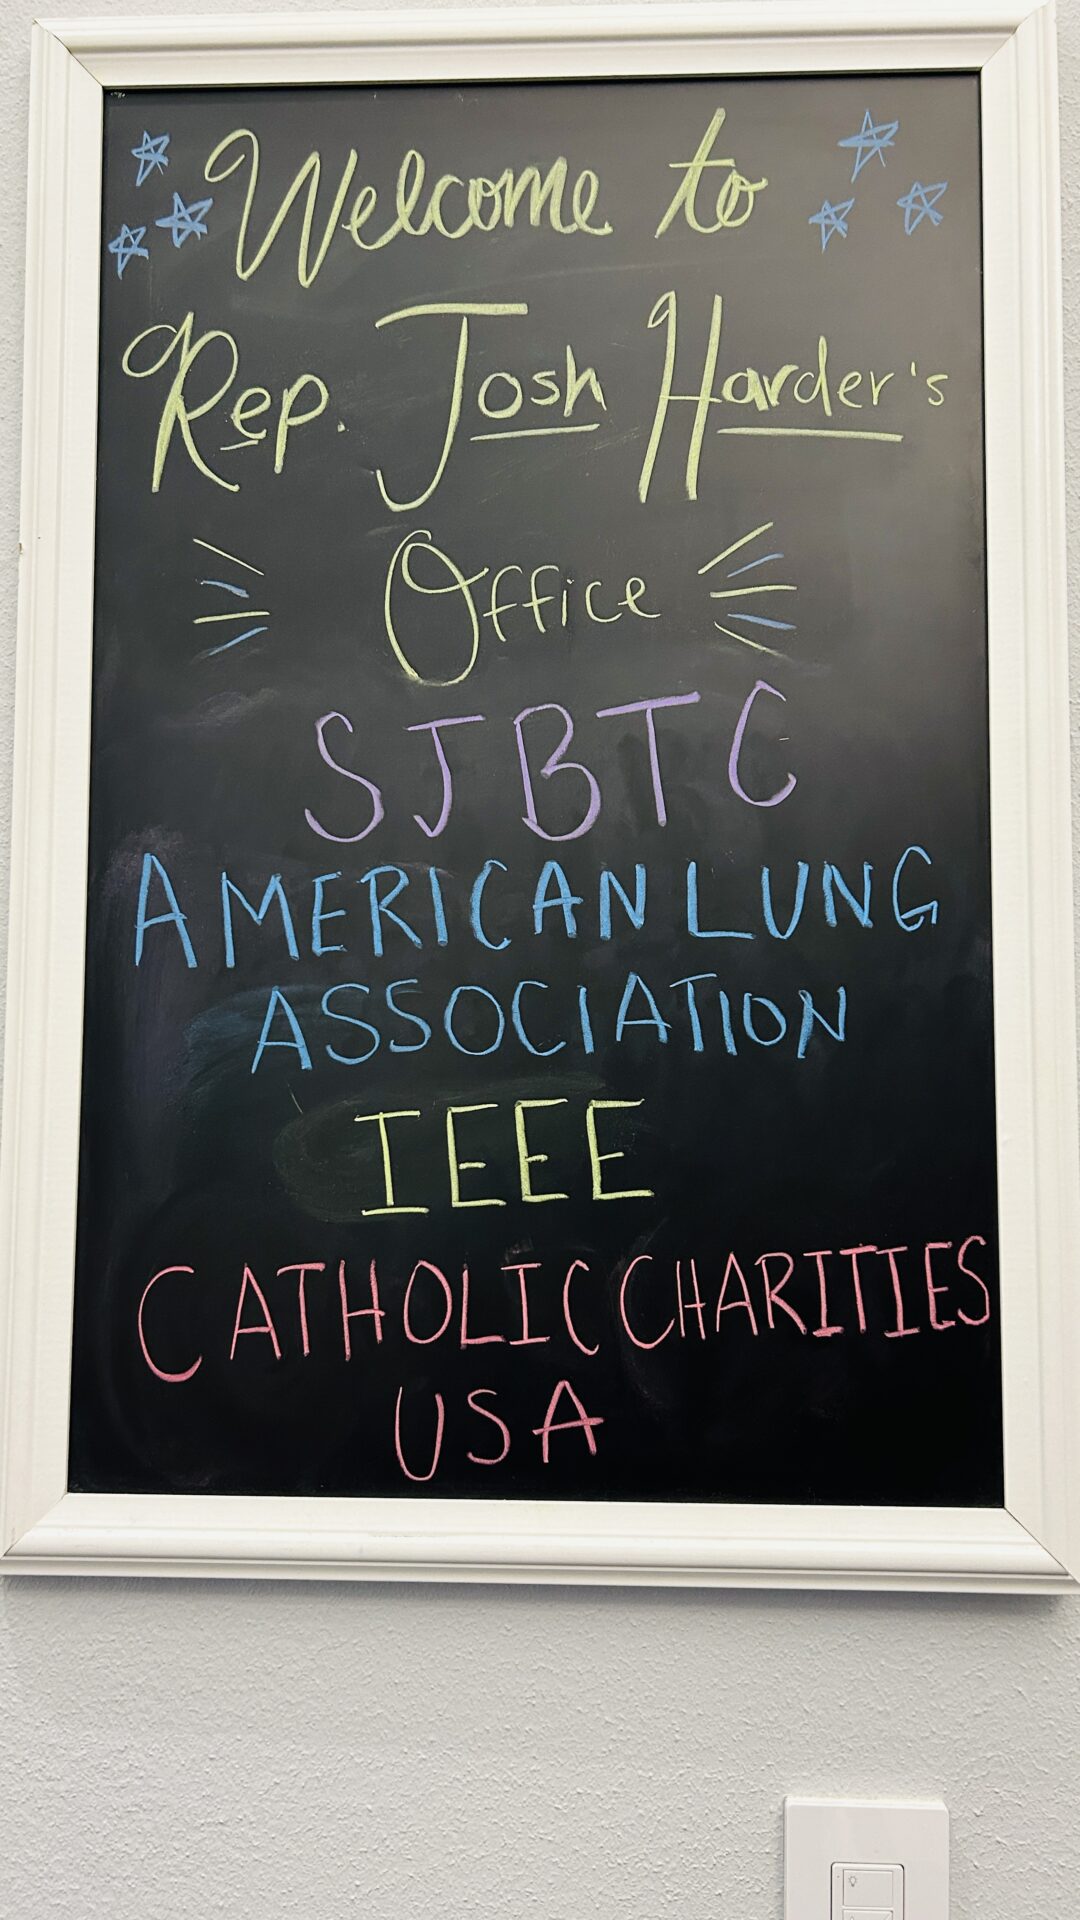 Welcome to
Rep. Josh Harder's
Office
SJBTC
AMERICAN LUNG
ASSOCIATION
IEEE
CATHOLIC CHARITIES
USA